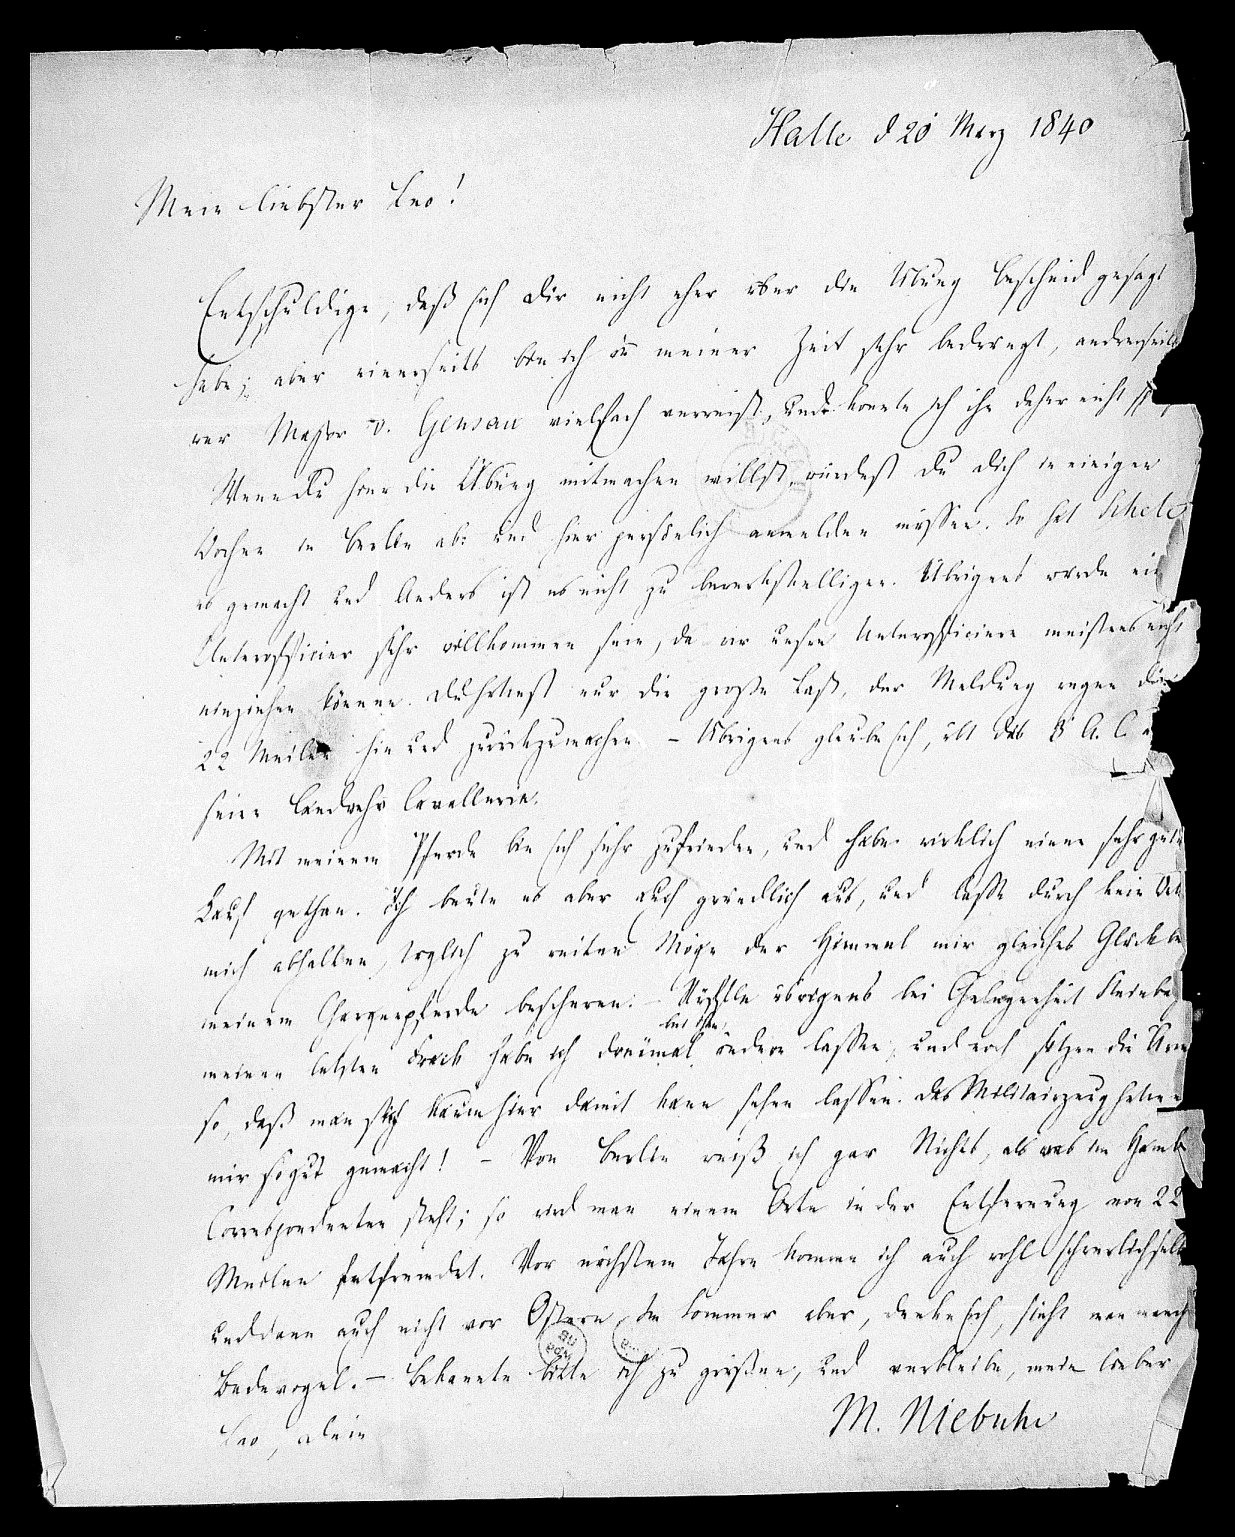 Halle d 20 Merz 1840
Mein liebster Leo!
Entschuldige, daß ich Dir nicht eher über die Übung Bescheid gesagt
habe; aber einerseits bin ich in meiner Zeit sehr bedrängt, andrerseits
war Major v. Gensau vielfach verreist, und konnte ich ihn daher nicht
Wenn Du hier die Übung mitmachen willst, würdest Du Dich in einigen
Wochen in Berlin ab: und hier persönlich anmelden müssen. So hat
es gemacht und Anders ist es nicht zu bewerkstelligen. Übrigens würde ein
Unterofficier sehr willkommen sein, da wir unsre Unterofficiere meistens nicht
einziehen können. Du hättest nur die große Last, der Meldung wegen die
22 Meilen hin und zurückzumachen. – Übrigens glaube ich, übt das 3 A. C.
seine Landwehr Cavallerie.
Mit meinem Pferde bin ich sehr zufrieden, und habe wirklich einen sehr guten
Kauf gethan. Ich beute es aber auch gründlich aus, und lasse durch kein
mich abhalten, täglich zu reiten. Möge der Himmel mir gleiches Glück bei
meinem Chargenpferde bescheren. – übrigens bei Gelegenheit
bei ihm
meinen letzten Frack habe ich dreimal ändern lassen, und noch sitzen die
so, daß man sich kaum hier damit kann sehen lassen. Das Militairzeug hat er
mir so gut gemacht! – Von Berlin weiß ich gar Nichts, als was im Hamb
Correspondenten steht; so wird man einem Orte in der Entfernung von 22
Meilen entfremdet. Vor nächstem Jahre komme ich auch wohl schwerlich selbst
und dann auch nicht vor Ostern. Im Sommer aber, denke ich, sieht man manchen
Badevogel. – Bekannte bitte ich zu grüßen, und verbleibe, mein lieber
Leo, Dein
M. Niebuhr